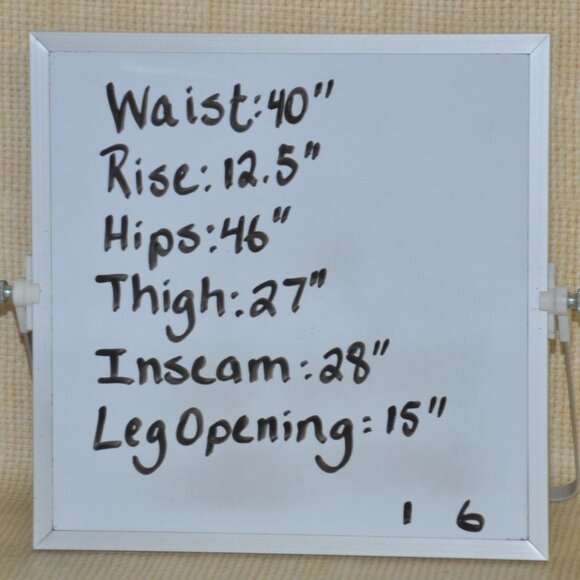 Waist: 40"
Rise: 12.5"
Hips: 46"
Thigh: 27"
Inseam: 28"
Leg Opening: 15"
1 6